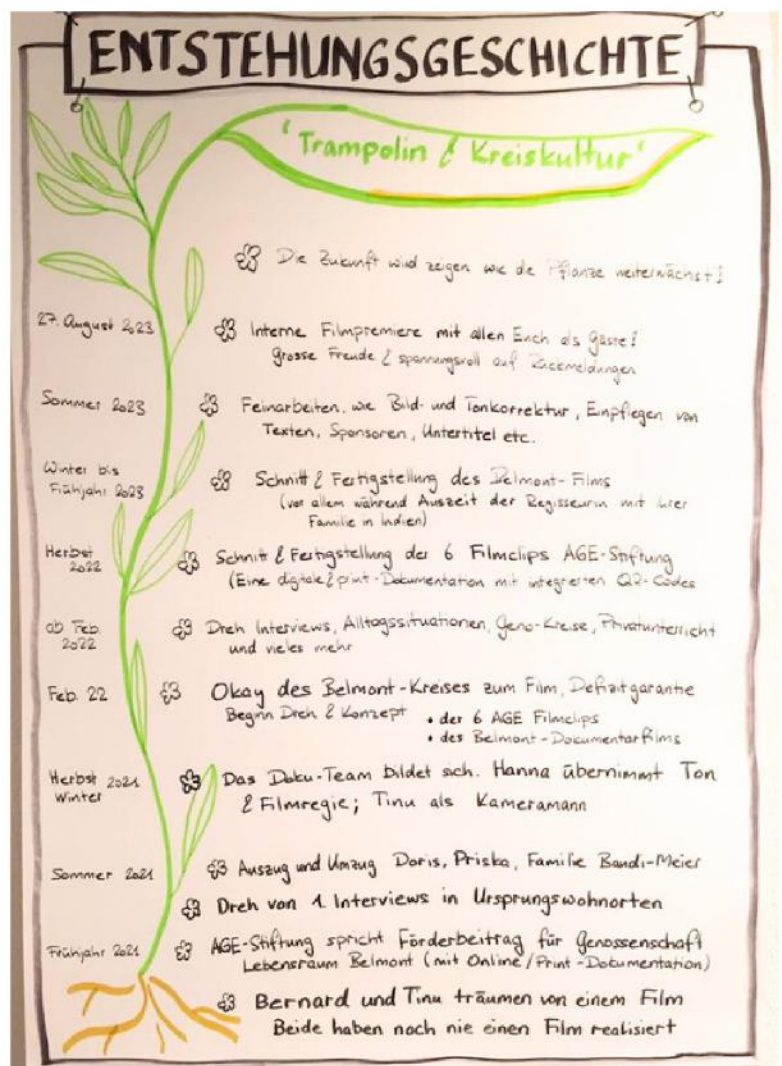 ENTSTEHUNGSGESCHICHTE
'Trampolin & Kreiskultur'
Die Zukunft wird zeigen wie die Pflanze weiterwächst!
27. August 2023
Interne Filmpremiere mit allen Euch als Gäste!
Grosse Freude & spannungsvoll auf Rückmeldungen
Sommer 2023
Feinarbeiten, wie Bild- und Tonkorrektur, Einpflegen von
Texten, Sponsoren, Untertitel etc.
Winter bis
Frühjahr 2023
Schnitt & Fertigstellung des Belmont-Films
(vor allem während Auszeit der Regisseurin mit ihrer
Familie in Indien)
Herbst
2022
Schnitt & Fertigstellung der 6 Filmclips AGE-Stiftung
(Eine digitale & print-Dokumentation mit integrierten QR-Codes
ab Feb.
2022
Dreh Interviews, Alltagssituationen, Geno-Kreise, Privatunterricht
und vieles mehr
Feb. 22
Okay des Belmont-Kreises zum Film, Defizitgarantie
Beginn Dreh & Konzept
• der 6 AGE Filmclips
• des Belmont-Dokumentarfilms
Herbst 2021
Winter
Das Doku-Team bildet sich. Hanna übernimmt Ton
& Filmregie; Tinu als Kameramann
Sommer 2021
Auszug und Umzug Doris, Priska, Familie Bandi-Meier
Dreh von 1. Interviews in Ursprungswohnorten
Frühjahr 2021
AGE-Stiftung spricht Förderbeitrag für Genossenschaft
Lebensraum Belmont (mit Online/Print-Dokumentation)
Bernard und Tinu träumen von einem Film
Beide haben noch nie einen Film realisiert